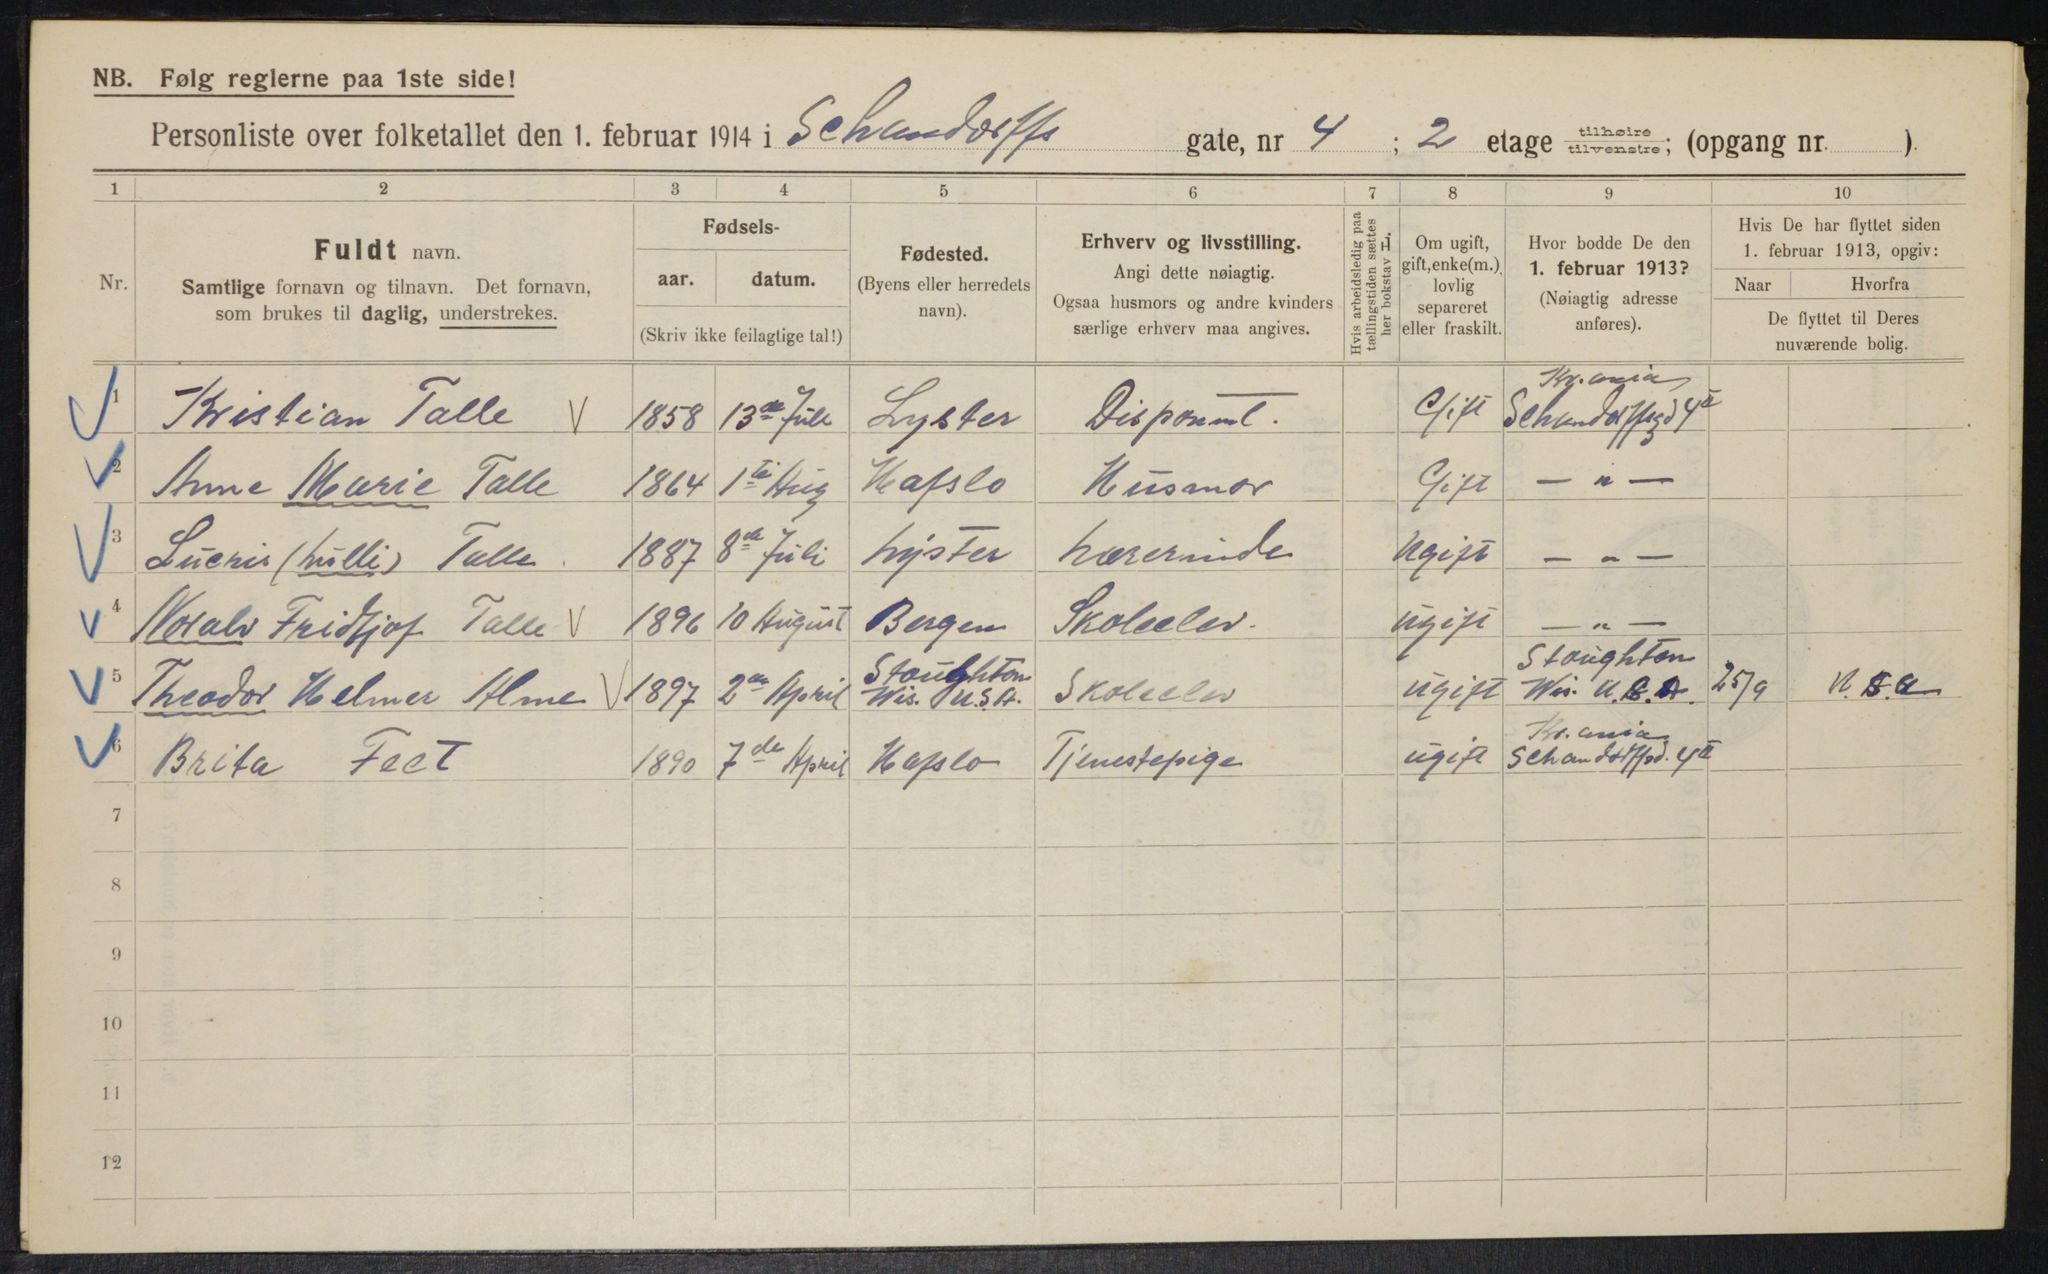 NB. Følg reglerne paa 1ste side!
Personliste over folketallet den 1. februar 1914 i Schandorffs gate, nr 4 ; 2 etage tilhøire tilvenstre; (opgang nr. ).
1 2 3 4 5 6 7 8 9 10
Nr.
Fuldt navn.
Samtlige fornavn og tilnavn. Det fornavn,
som brukes til daglig, understrekes.
Fødsels-
aar. datum.
(Skriv ikke feilagtige tal!)
Fødested.
(Byens eller herredets
navn).
Erhverv og livsstilling.
Angi dette nøiagtig.
Ogsaa husmors og andre kvinders
særlige erhverv maa angives.
Hvis arbeidsledig paa
tællingstiden sættes
her bokstav L.
Om ugift,
gift, enke(m.),
lovlig
separeret
eller fraskilt.
Hvor bodde De den
1. februar 1913?
(Nøiagtig adresse
anføres).
Hvis De har flyttet siden
1. februar 1913, opgiv:
Naar Hvorfra
De flyttet til Deres
nuværende bolig.
Kr.ania
1 Kristian Talle V 1858 13de Juli Lyster Disponent. Gift Schandorffsgd 4II
2 Anne Marie Talle 1864 1te Aug Hafslo Husmor Gift — " —
3 (Lulli) Talle. 1887 8de Juli Lyster Lærerinde Ugift — " —
4 Noralv Fridtjof Talle V 1896 10 August Bergen Skoleelev. ugift — " —
Stoughton Stoughton
5 Theodor Helmer Alme V 1897 2den April Wis. U.S.A. Skoleelev ugift Wis. U.S.A. 25/9 U.S.A
Kr.ania
6 Brita Feet 1890 7de April Hafslo Tjenestepige ugift Schandorffsgd. 4II
7
8
9
10
11
12